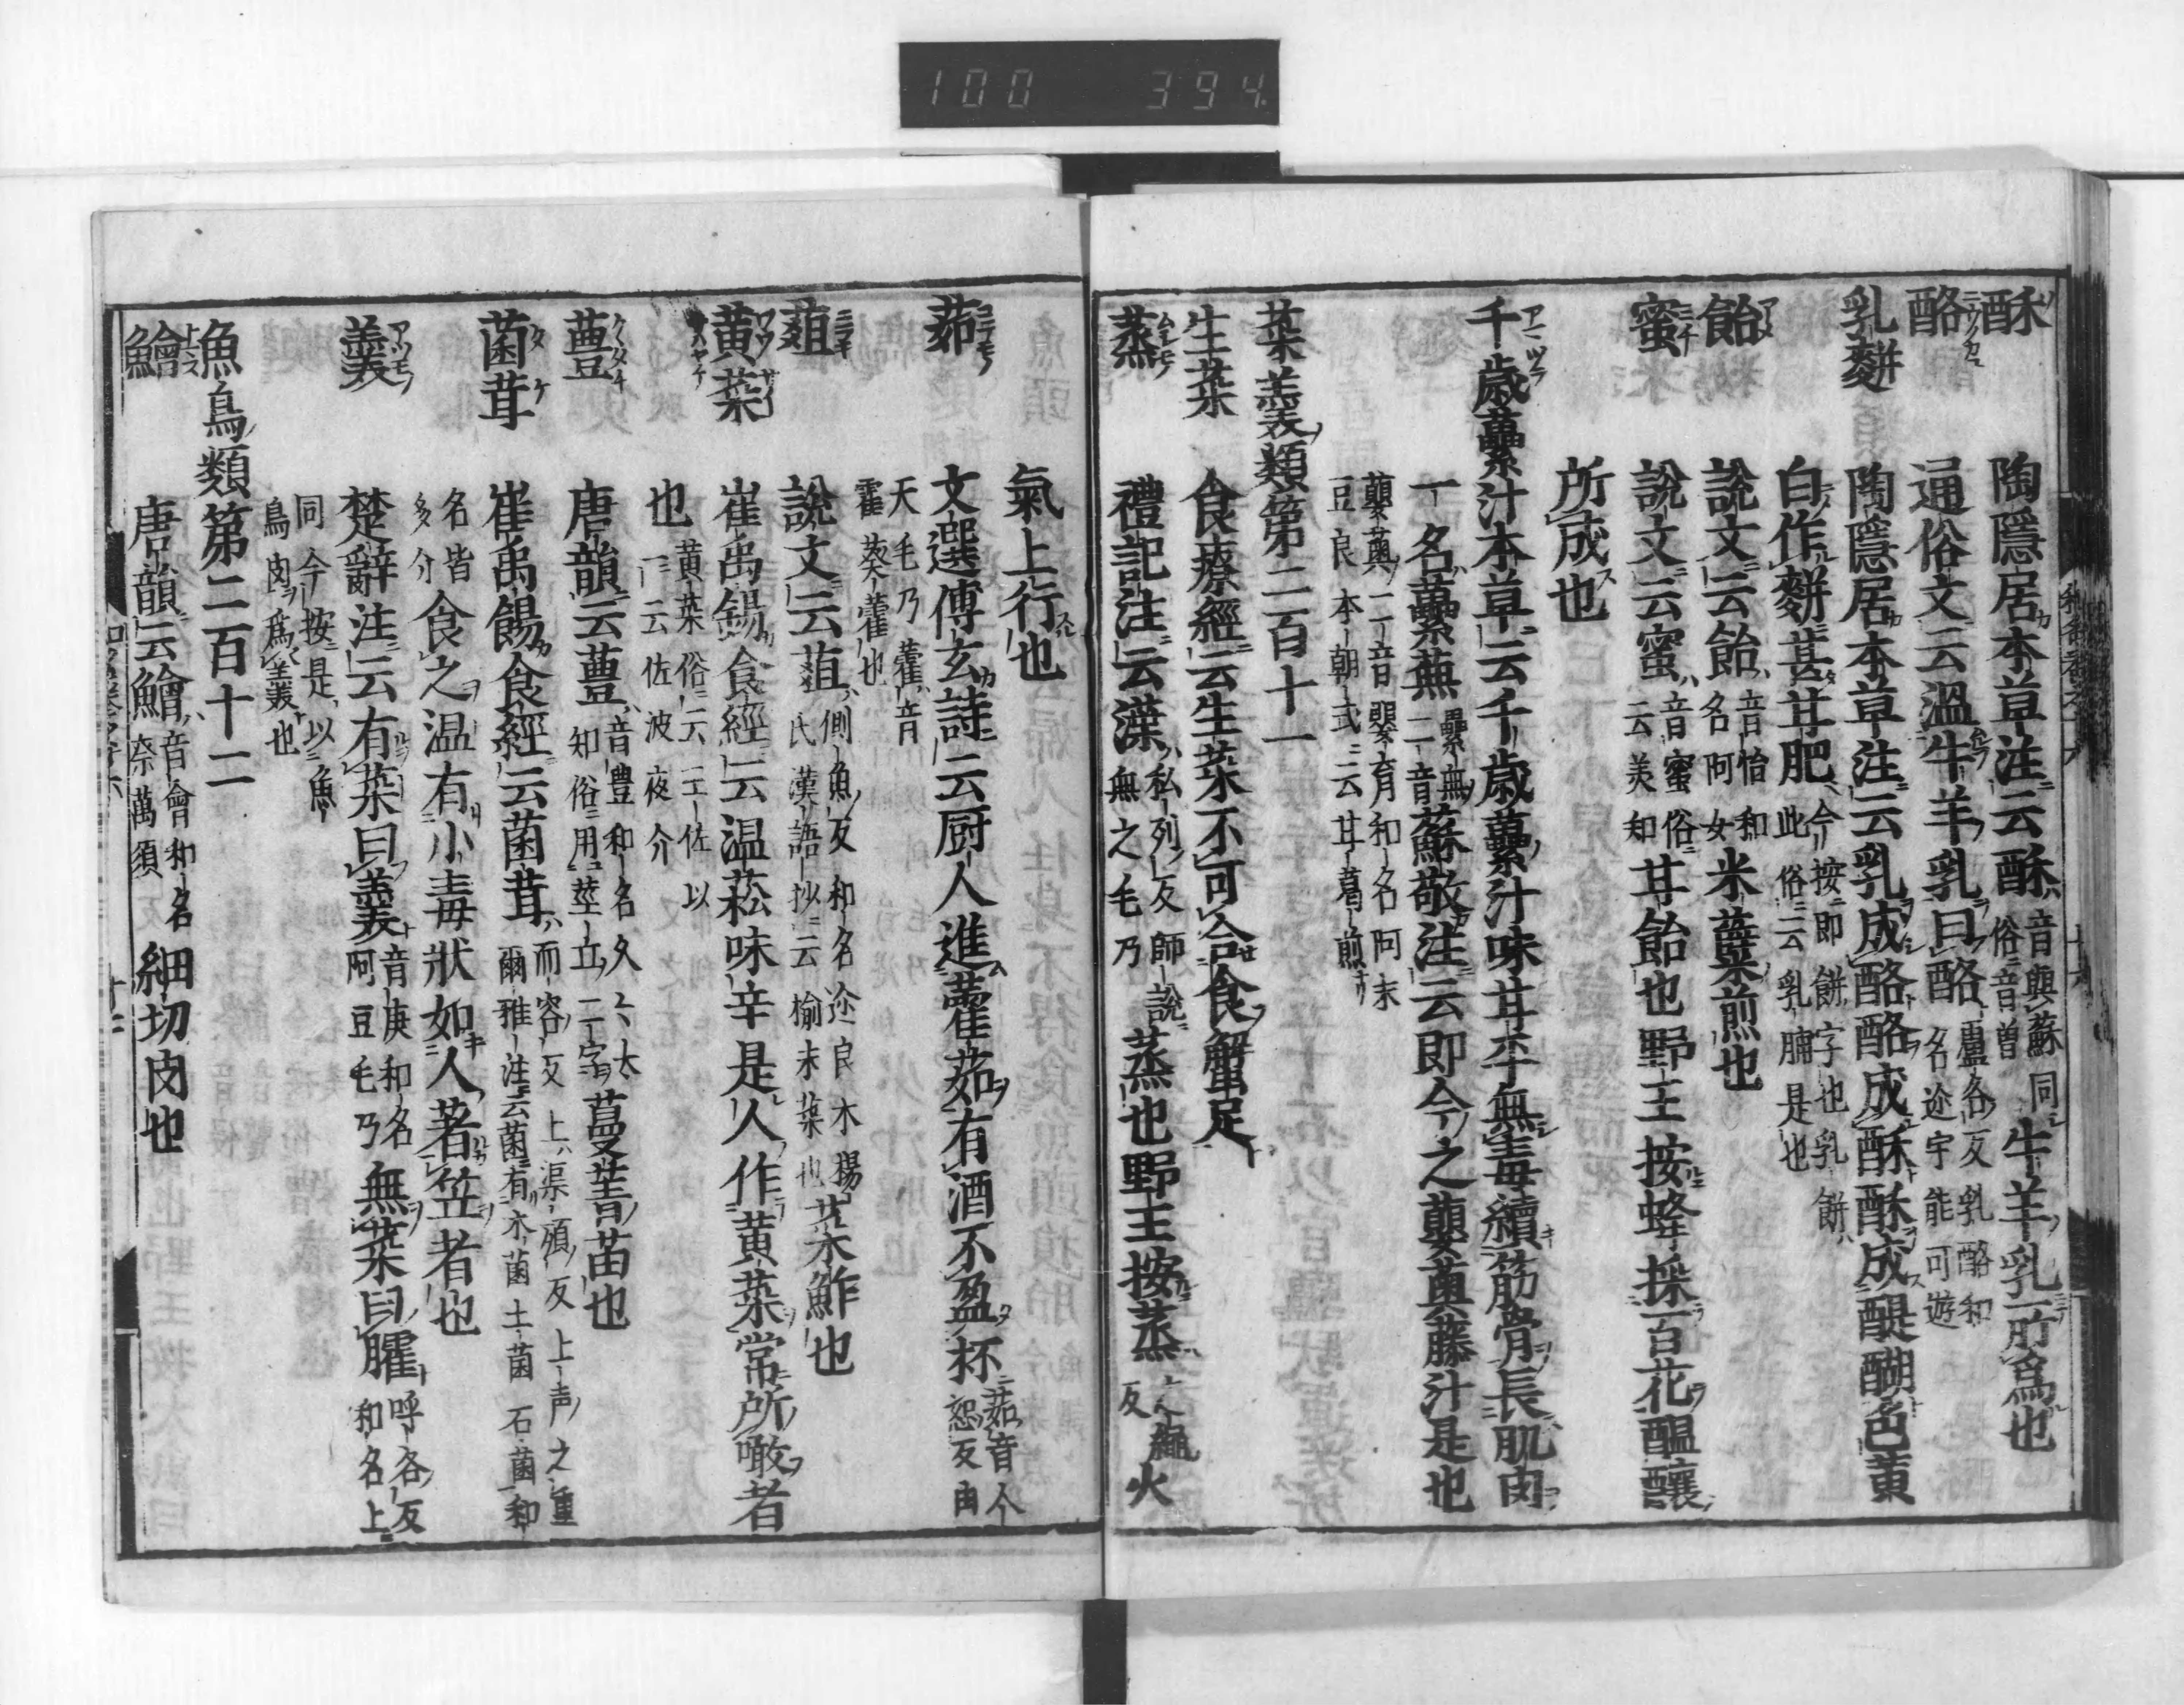 100 394
酥 陶隱居本草注云酥 音與蘇同 俗音曾 牛羊乳所爲也
酪 通俗文云溫牛羊乳曰酪 盧各反乳酪和 名迩宇能可遊
乳麨 陶隱居本草注云乳成酪酪成酥酥成醍醐色黄
白作麨甚甘肥 今按即餅字也乳餅 此俗云乳脯是也
飴 說文云飴 音怡和 名阿女 米蘗煎也
蜜 說文云蜜 音蜜俗 云美知 甘飴也野王按蜂採百花醞釀
所成也
千歳虆汁 本草云千歳虆汁味甘平無毒續筋骨長肌肉
一名虆蕪 虆無 二音 蘇敬注云即今之蘡薁藤汁是也
蘡薁二音嬰育和名阿末
豆良本朝式云甘葛煎
菜羹類第二百十一
生菜 食療經云生菜不可合食蟹足
蒸 禮記注云渫 私列反師說 無之毛乃 蒸也野王按蒸 火
氣上行也
茹 文選傅玄詩云厨人進藿茹有酒不盈杯 茹音人 恕反由
天毛乃藿音
霍葵藿也
葅 說文云葅 側魚反和名迩良木楊 氏漢語抄云楡末菜也 菜鮓也
黄菜 崔禹錫食經云温菘味辛是人作黄菜常所噉者
也 黄菜俗云王佐以 一云佐波夜介
蘴 唐韻云蘴 音豊和名久々太 知俗用莖立二字 蔓菁苗也
菌茸 崔禹錫食經云菌茸 而容反上渠殞反上声之重 爾雅注云菌有木菌土菌石菌和
名皆 多介 食之温有小毒状如人著笠者也
羹 楚辭注云有菜曰羹 音庚和名 阿豆毛乃 無菜曰臛 呼各反 和名上
同今按是以魚
鳥肉爲羹也
魚鳥類第二百十二
鱠 唐韻云鱠 音會和名 奈萬須 細切肉也